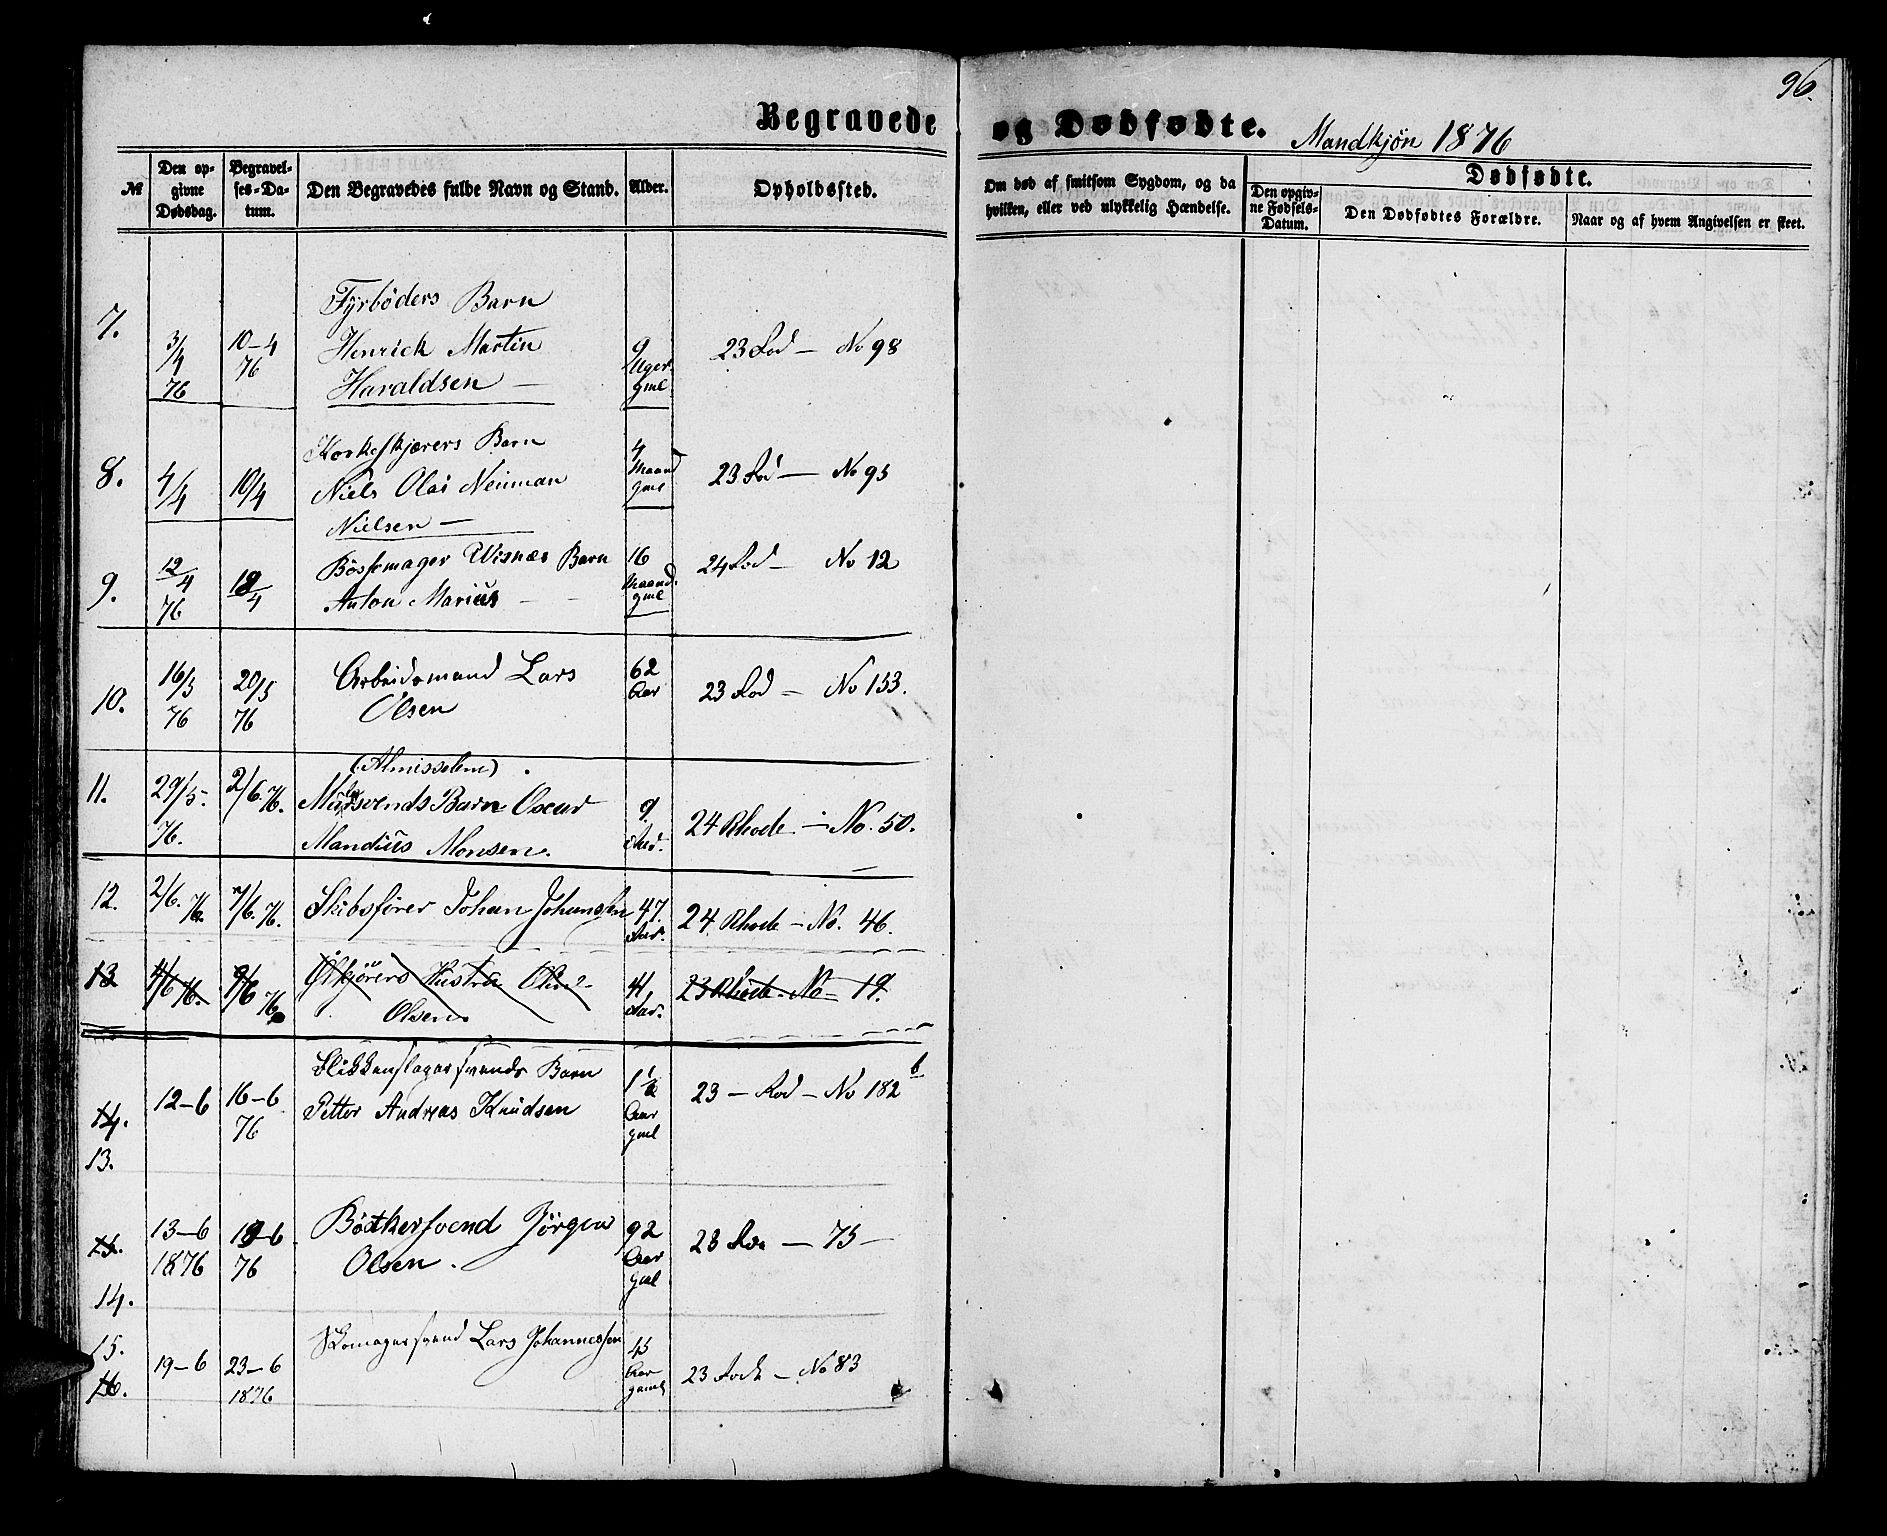 96.
Begravede og Dødfødte. Mandkjøn 1876
№
Den opgivne Dødsdag.
Begravelses-Datum.
Den Begravedes fulde Navn og Stand.
Alder.
Opholdssted.
Om død af smitsom Sygdom, og da hvilken, eller ved ulykkelig Hændelse.
Dødfødte.
Den opgivne Fødsels-Datum.
Den Dødfødtes Forældre.
Naar og af hvem Angivelsen er skeet.
7. 3/4 76 10-4 76 Fyrbøders Barn
Henrick Martin
Haraldsen — 9 Uger gml 23 Rod — No 98
8. 4/4 10/4 Korkeskjærers Barn
Niels Olai Neuman
Nielsen — 4 Maand gml 23 Rod — No 95
9. 12/4 76 18/4 Bøssemager Wisnæs Barn
Anton Marius — 16 Maand. gml 24 Rod — No 12
10. 16/5 76 20/5 76 Arbeidsmand Lars
Olsen 62 Aar 23 Rod — No 153.
(Almisselem).
11. 29/5. 76. 2/6. 76. Barn Oscar
Mandius Monsen. 9. Aar. 24 Rhode — No. 50.
12. 2/6. 76. 7/6. 76. Skibsfører Johan Johansen 47. Aar. 24 Rhode — No. 46.
13 4/6 76. 9/6 76. Hustru
Olsen. 41 Aar. 23 Rhode — No — 19.
14. 13. 12-6 16-6 76 Blikkenslagersvends Barn
Petter Andreas Knudsen 1 1/2 Aar gml 23 — Rod — No 182 b
15. 14. 13-6 1876 19-6 76 Bødkersvend Jørgen
Olsen. 92 Aar gml 23 Ro — 75 —
15. 16. 19-6 23-6 1876 Skomagersvend Lars Johannessen 45 Aar gaml 23 Rode — No 83